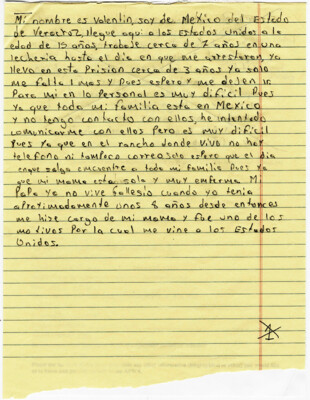 Mi nombre es Valentin, soy de Mexico del Estado
de Veracruz, llegue aqui a los Estados Unidos a la
edad de 15 años, trabaje cerca de 7 años en una
lecheria hasta el dia en que me arrestaron, ya
llevo en esta Prision cerca de 3 años ya solo
me falta 1 mas y pues espero y me dejen ir
Para mi en lo Personal es muy dificil Pues
ya que toda mi familia esta en Mexico
y no tengo contacto con ellos, he intentado
comunicarme con ellos pero es muy dificil
Pues ya que en el rancho donde vivo no hay
telefono ni tampoco correo solo espero que el dia
en que salga encuentre a toda mi familia Pues ya
que mi mama esta sola y muy enferma Mi
Papa ya no vive fallesio cuando yo tenia
aproximadamente unos 8 años desde entonces
me hise cargo de mi mama y fue uno de los
motivos Por la cual me vine a los Estados
Unidos.
1